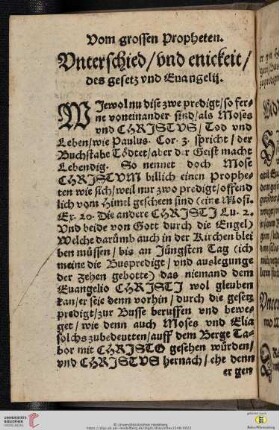 Vom grossen Propheten.
Vnterschied/vnd enickeit/
des gesetz vnd Euangelij.
WJewol nu dise zwe predigt/so fers
ne voneinander sind/als Moses
vnd CHRJSTVS/Tod vnd
Leben/wie Paulus. Cor. 3. spricht/der
Buchstabe Tödtet/aber d'r Geist macht
Lebendig. So nennet doch Mose
CHRJSTVM billich einen Prophes
ten wie sich/weil nur zwo predigt/offend
lich vom Himel gescheen sind (eine Mosi.
Ex. 20. Die andere CHRJSTJ Lu. 2.
Vnd beide von Gott durch die Engel)
Welche darümb auch in der Kirchen blei
ben müssen/bis an Jüngsten Tag (ich
meine die Buspredigt/vnd auslegunge
der zehen gebotte) das niemand dem
Euangelio CHRJSTJ wol gleuben
kan/er seie denn vorhin/durch die gesetz
predigt/zur Busse beruffen vnd bewes
get/wie denn auch Moses vnd Elia
solchs zubedeuten/auff dem Berge Ta
bor mit CHRJSTO gesehen würden/
vnd CHRJSTVS hernach/ehe denn
er gen